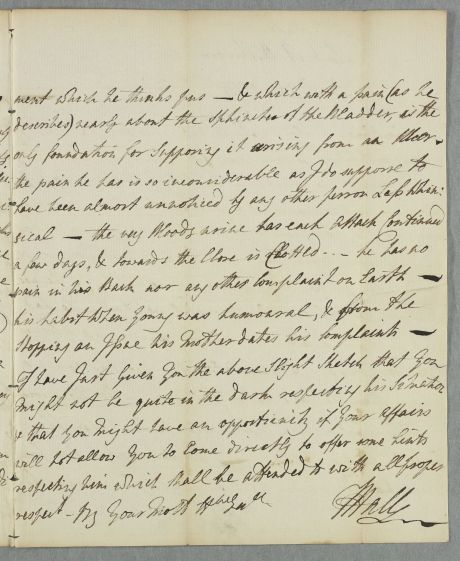 ment which he thinks pus — & which with a pain (as he
described) nearly about the Sphincter of the Bladder, is the
only foundation for Supposing it arising from an Ulcer
the pain he has is so inconsiderable as I do suppose to
have been almost unnoticed by any other person Less Whim:
sical — the very bloody urine has each attack Continued
a few days, & towards the Close is Clotted - - - he has no
pain in his Back nor any other Complaint on Earth —
his habit When Young was humoural, & from the
Stopping an Issue his Mother dates his Complaints —
I have Just Given You the above Slight Sketch that You
Might not be quite in the Dark respecting his Situation
& that You Might have an opportunity if Your affairs
will not allow You to Come directly to offer some hints
respecting him which shall be attended to with all proper
respect - by Your Most
Hall